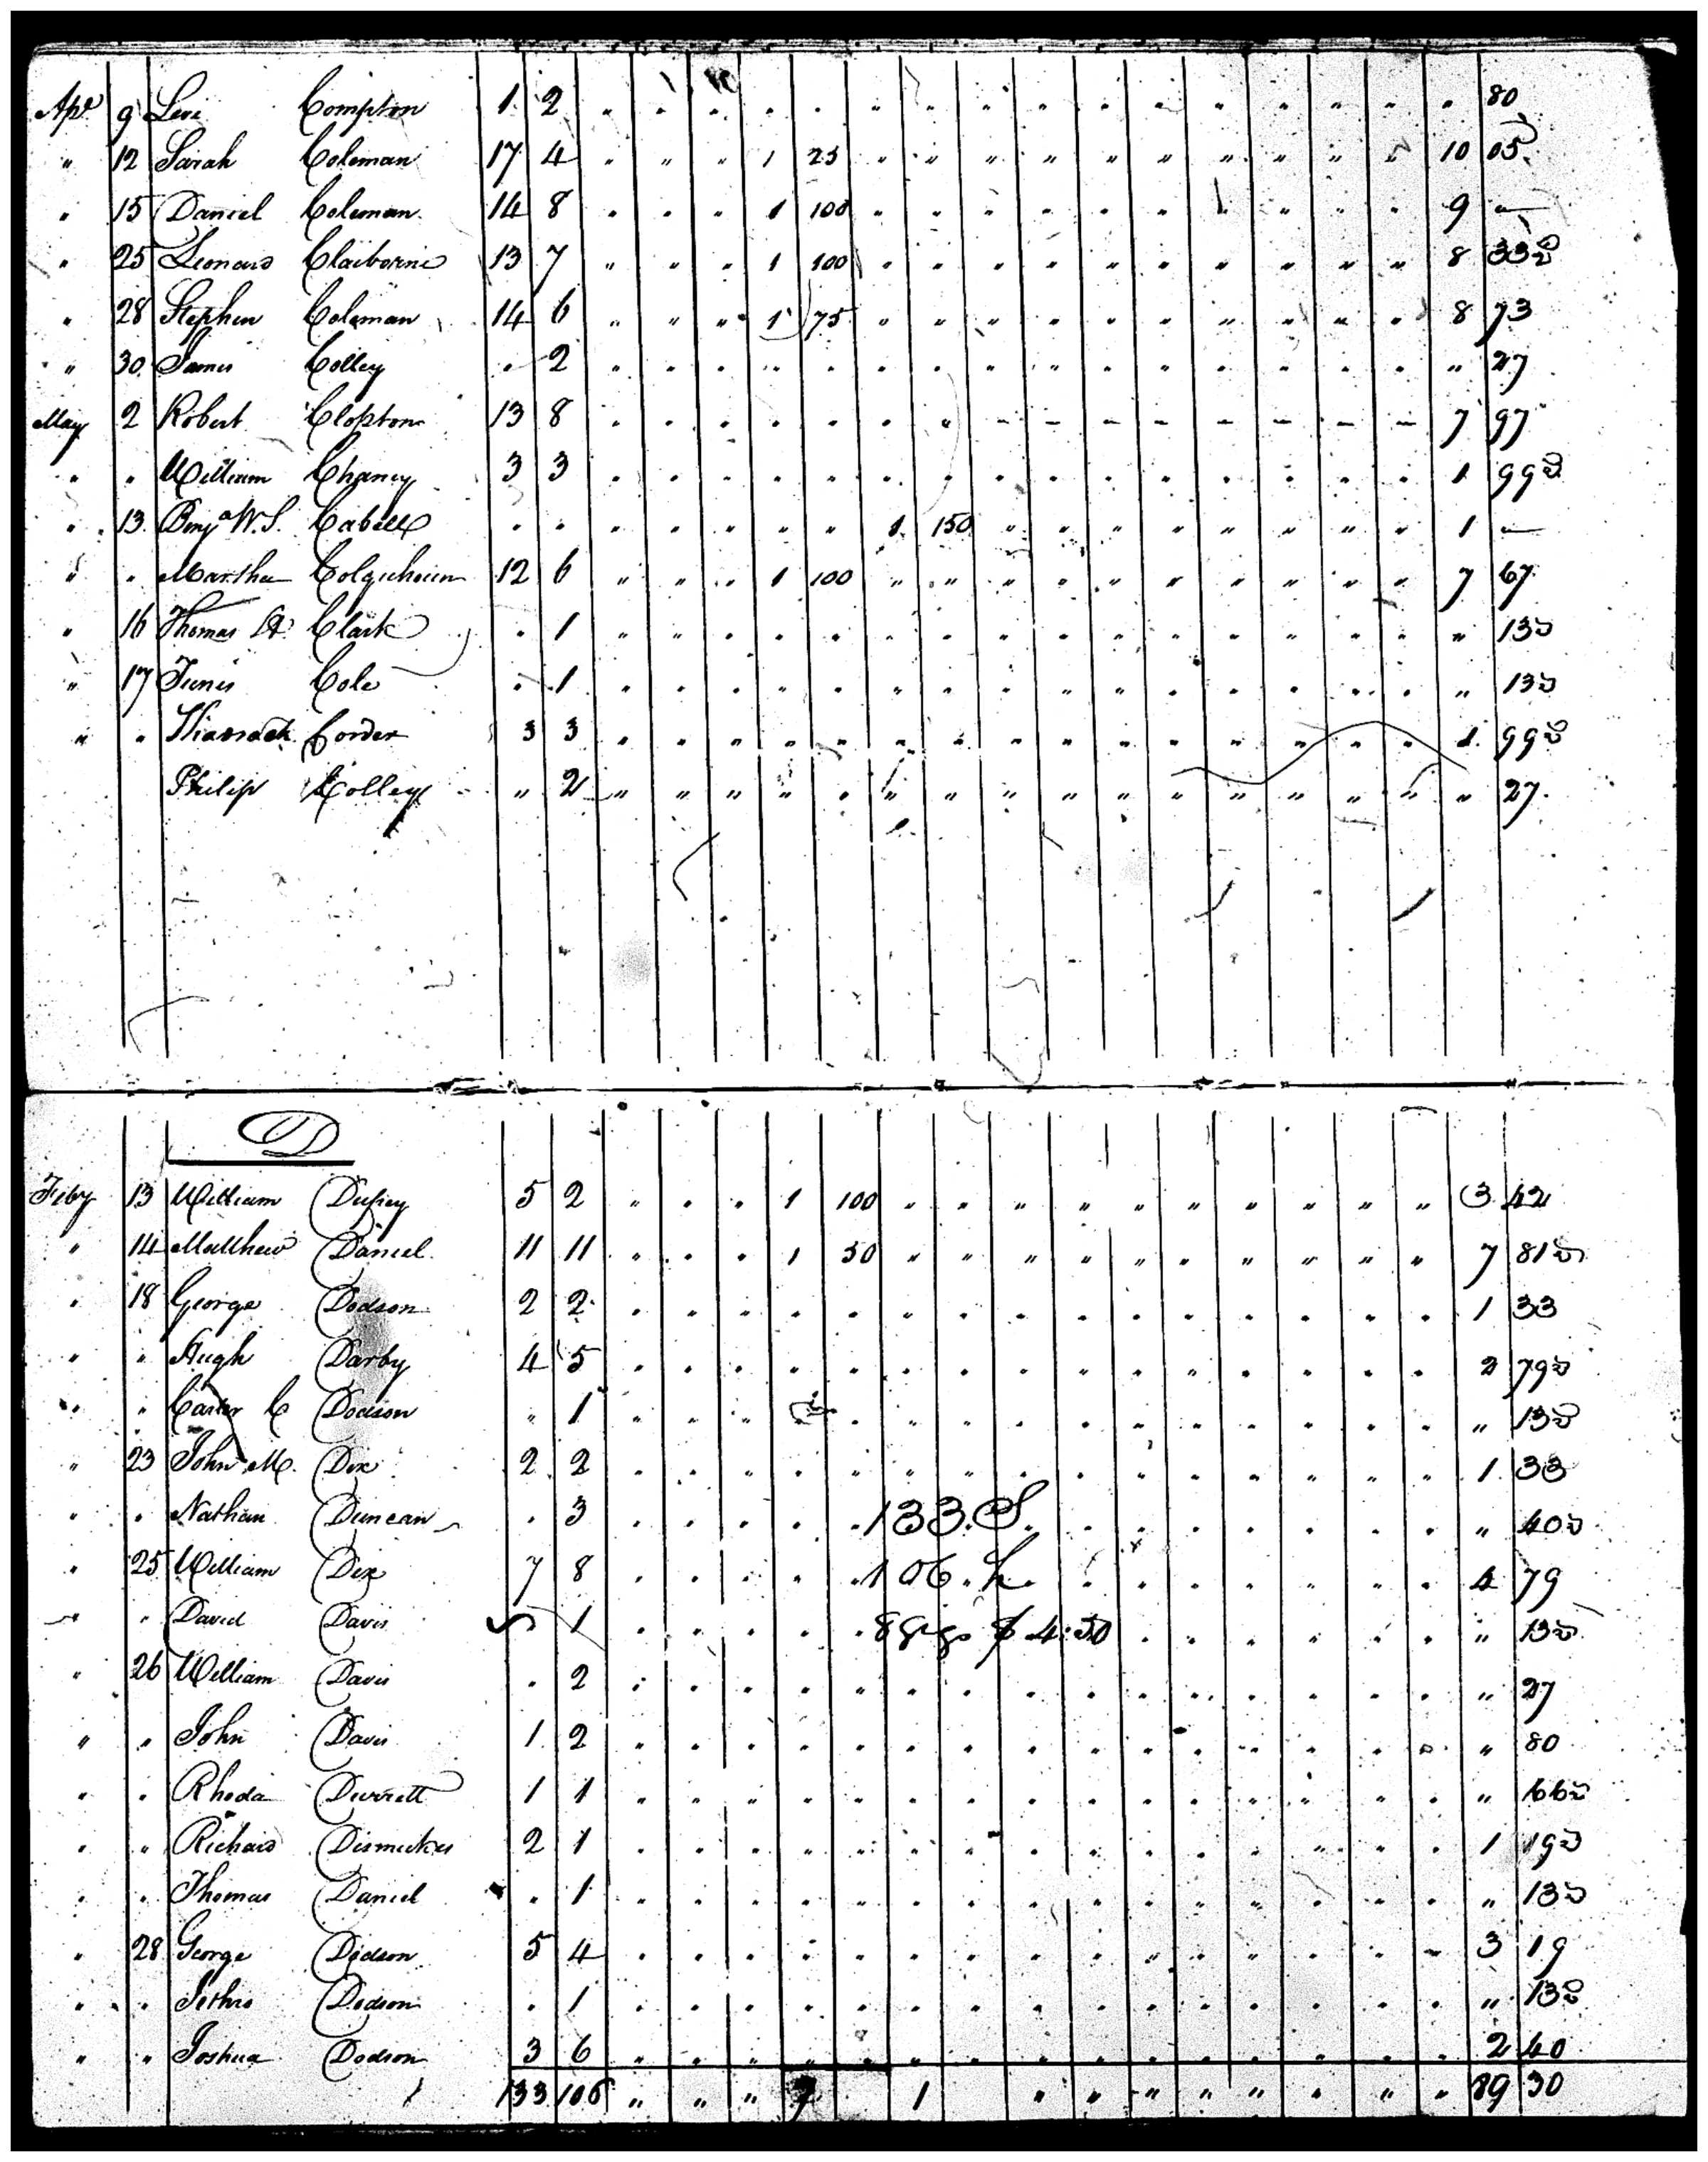 Apl 9 Levi Compton 1 2 " " " " " " " " " " " " " " " " 80
" 12 Sarah Coleman 17 4 " " " 1 25 " " " " " " " " " " 10 05
" 15 Daniel Coleman 14 8 " " " 1 100 " " " " " " " " " " 9 —
" 25 Leonard Claiborne 13 7 " " " 1 100 " " " " " " " " " " 8 33½
" 28 Stephen Coleman 14 6 " " " 1 75 " " " " " " " " " " 8 73
" 30 James Colley " 2 " " " " " " " " " " " " " " " " 27
May 2 Robert Clopton 13 8 " " " " " " " — — — — — — — — 7 97
" " William Chaney 3 3 " " " " " " " " " " " " " " " 1 99½
" 13 Benja W.S. Cabell " " " " " " " 1 150 " " " " " " " " 1 —
" " Martha Colquhoun 12 6 " " " 1 100 " " " " " " " " " " 7 67
" 16 Thomas Clark " 1 " " " " " " " " " " " " " " " " 13½
" 17 Cole " 1 " " " " " " " " " " " " " " " " 13½
" " Corder 3 3 " " " " " " " " " " " " " " " 1 99½
Philip Colley " 2 " " " " " " " " " " " " " " " " 27
D
Feby 13 William Dupey 5 2 " " " 1 100 " " " " " " " " " " 3 42
" 14 Matthew Daniel 11 11 " " " 1 50 " " " " " " " " " " 7 81½
" 18 George Dodson 2 2 " " " " " " " " " " " " " " " 1 33
" " Hugh Darby 4 5 " " " " " " " " " " " " " " " 2 79½
" " Carter C Dodson " 1 " " " " " " " " " " " " " " " 13½
" 23 John M. Dix 2 2 " " " " " " " " " " " " " " " 1 33
" " Nathan Duncan " 3 " " " " 133. S. " " " " " " " " 40½
" 25 William Dix 7 8 " " " " 106. h. " " " " " " " 4 79
" " David Davis 1 " " " " 8 gigs $ 4:50 " " " " " " " 13½
" 26 William Davis " 2 " " " " " " " " " " " " " " " " 27
" " John Davis 1 2 " " " " " " " " " " " " " " " " 80
" " Rhoda Durrett 1 1 " " " " " " " " " " " " " " " " 66½
" " Richard Dismukes 2 1 " " " " " " " " " " " " " " " 1 19½
" " Thomas Daniel " 1 " " " " " " " " " " " " " " " " 13½
" 28 George Dodson 5 4 " " " " " " " " " " " " " " " 3 19
" " Jethro Dodson " 1 " " " " " " " " " " " " " " " " 13½
" " Joshua Dodson 3 6 " " " " " " " " " " " " " " " 2 40
133 106 " " " 7 1 " " " " " " " " 89 30